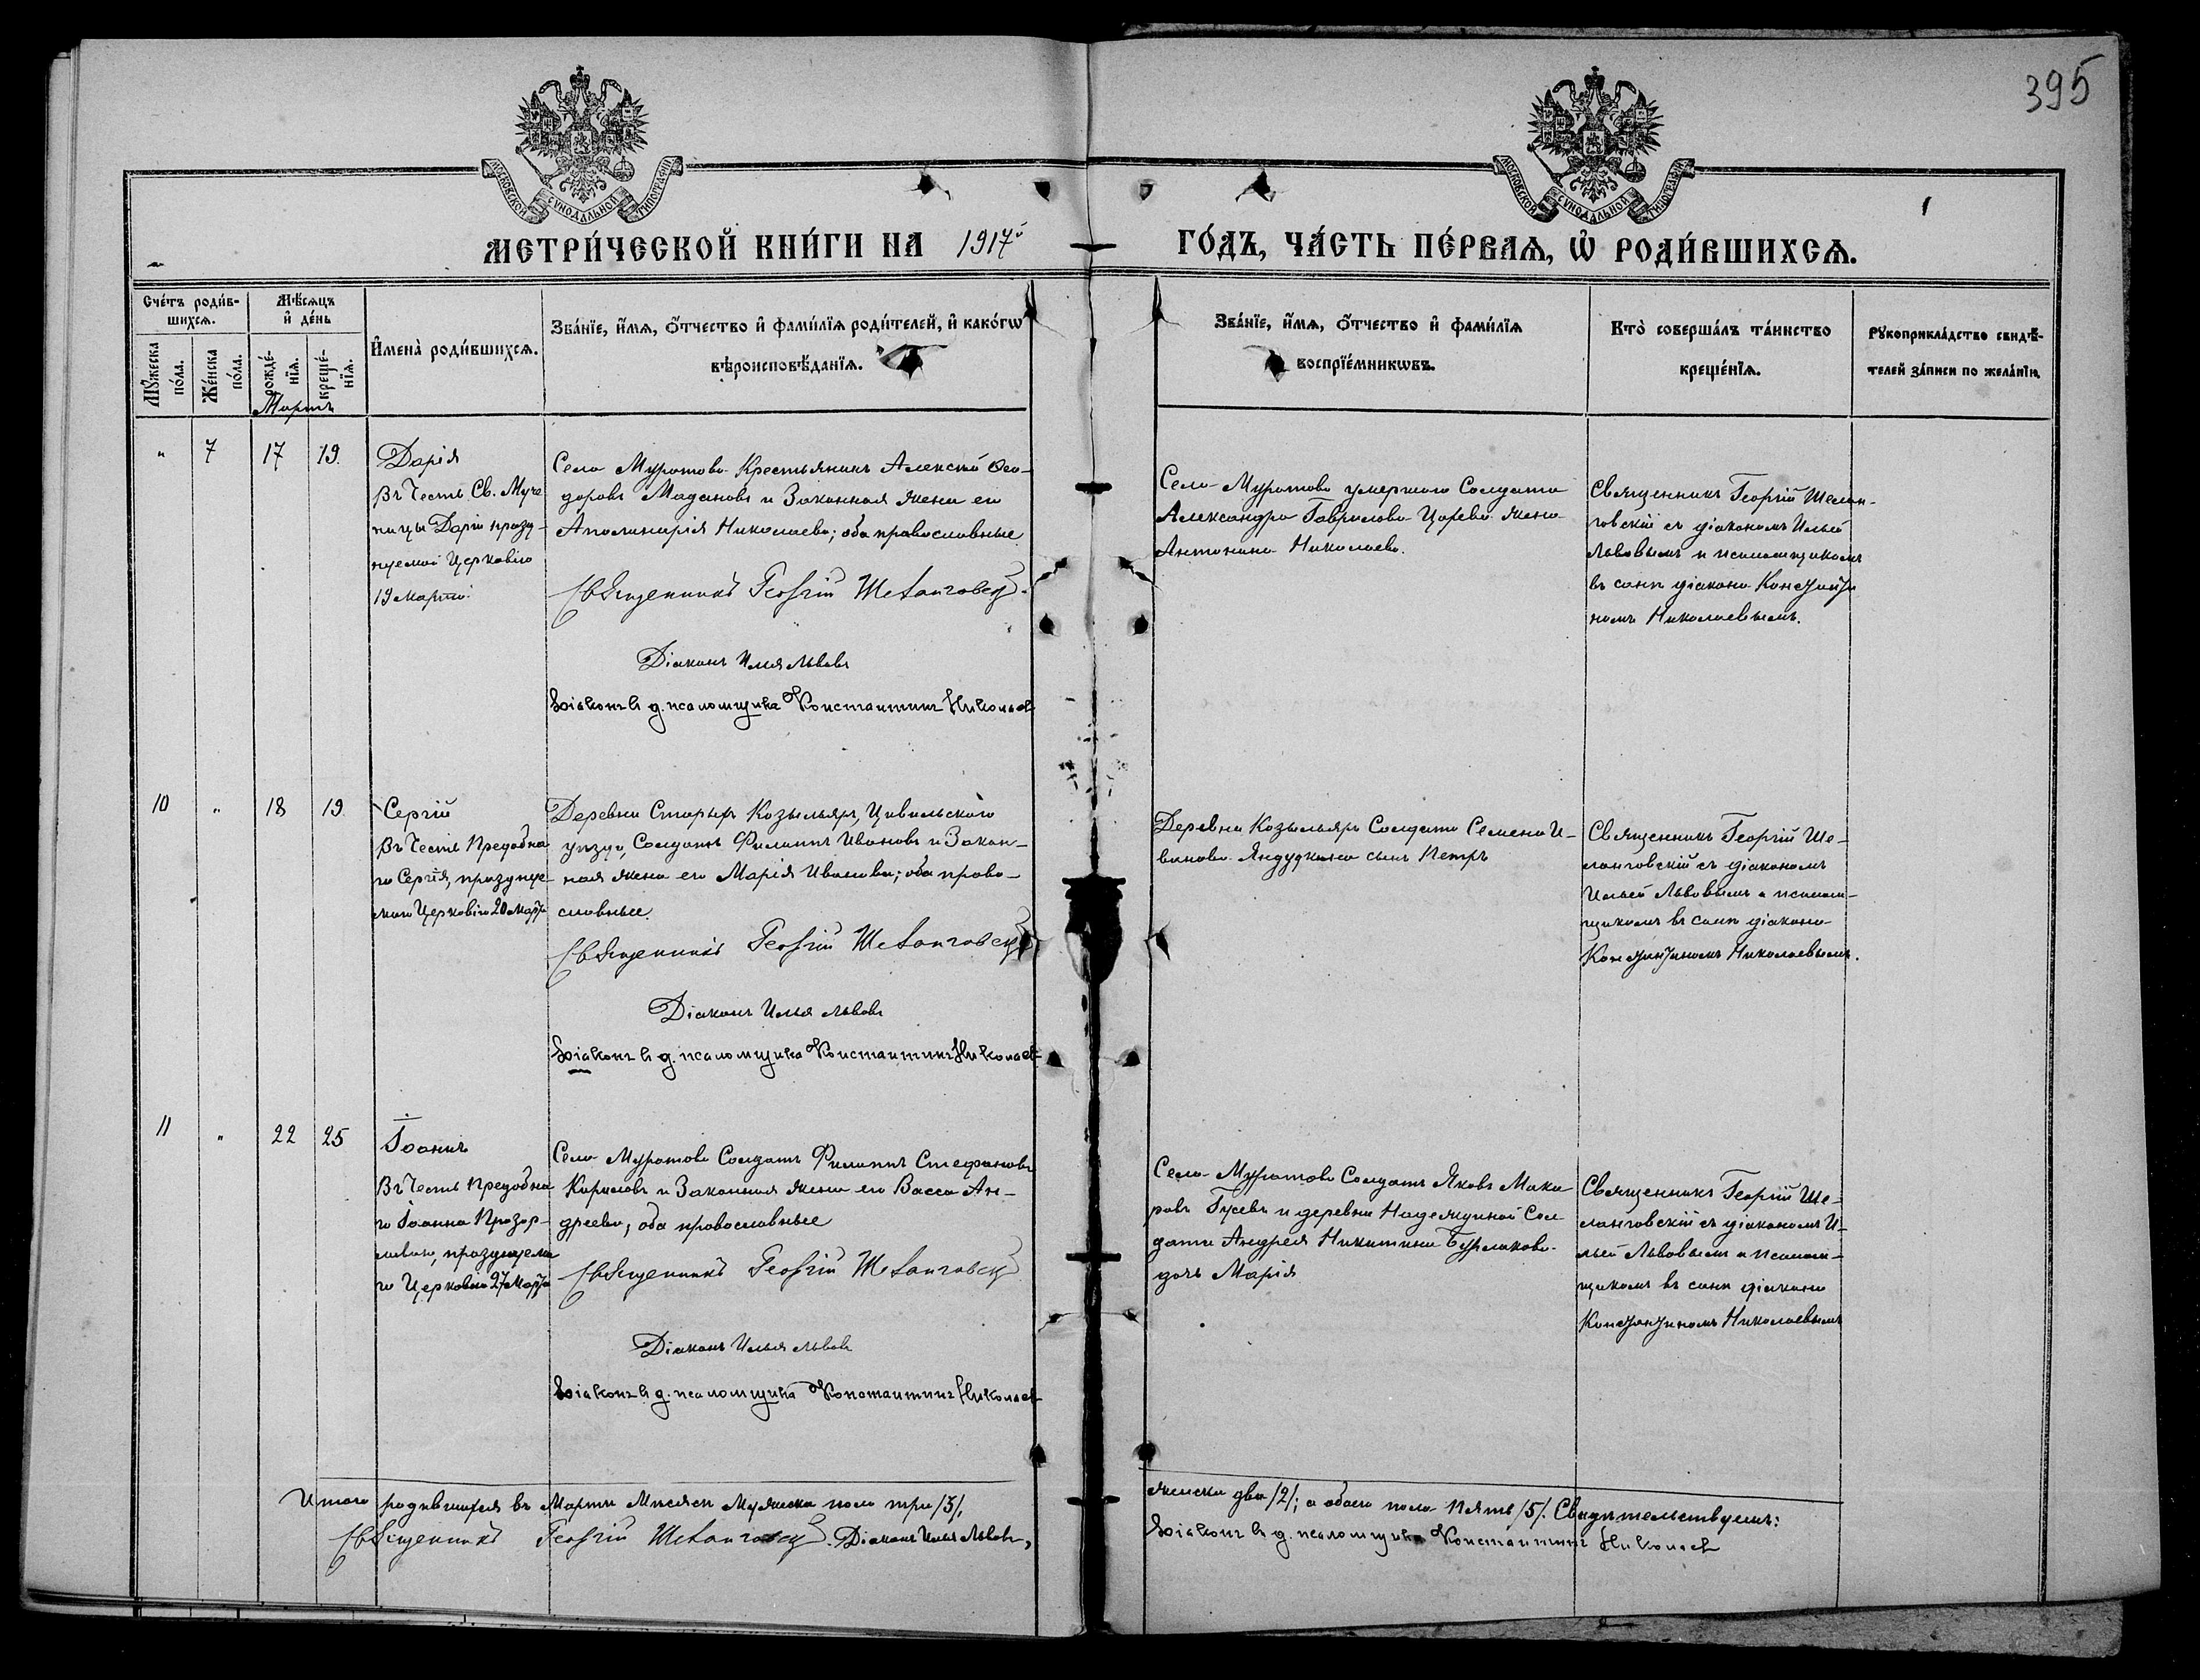 395
МОСКОВСКОЙ СУНОДАЛЬНОЙ ТИПОГРАФІИ
МОСКОВСКОЙ СУНОДАЛЬНОЙ ТИПОГРАФІИ
1
МЕТРИ́ЧЕСКОЙ КНИ́ГИ НА 1917й ГО́ДЪ, ЧА́СТЬ ПЕ́РВАѦ, Ѡ҆ РОДИ́ВШИХСѦ.
Сче́тъ роди́в-
шихсѧ.
Мꙋ́жеска
по́ла.
Же́нска
по́ла.
Мѣ́сѧцъ
и҆ де́нь
рожде́-
нїѧ.
креще́-
нїѧ.
Мартъ
И҆мена̀ роди́вшихсѧ.
Зва́нїе, и҆́мѧ, ѻ҆́тчество и҆ фами́лїѧ роди́телей, и҆ како́гѡ
вѣроисповѣ́данїѧ.
Зва́нїе, и҆́мѧ, ѻ҆́тчество и҆ фами́лїѧ
воспрїе́мникѡвъ.
Кто̀ соверша́лъ та́инство
креще́нїѧ.
Рꙋкоприкла́дство свидѣ́-
телей за́писи по жела́нїю.
" 7 17 19
Дарія
Въ Честь Св. Муче
ницы Даріи празд-
нуемой Церковію
19 марта.
Села Муратова Крестьянинъ Алексѣй Ѳео-
доровъ Мадановъ и Законная жена его
Аполинарія Николаева; оба православные
Священникъ Георгій Шеланговскій
Діаконъ Илья Львовъ
Діаконъ в д. псаломщика Константинъ Николаев
Села Муратова умершаго Солдата
Александра Гаврилова Царева жена
Антонина Николаева.
Священникъ Георгій Шелан-
говскій съ діакономъ Ильей
Львовымъ и псаломщикомъ
въ санѣ діакона Константи
номъ Николаевымъ.
10 " 18 19
Сергій
Въ Честь Преподобна
го Сергія, празднуе-
маго Церковію 20 марта
Деревни Старыхъ Козыльяръ, Цивильскаго
уѣзда, Солдатъ Филиппъ Ивановъ и Закон-
ная жена его Марія Иванова; оба право-
славные.
Священникъ Георгій Шеланговскій
Діаконъ Илья Львовъ
Діаконъ в д. псаломщика Константинъ Николаев
Деревни Козыльяръ Солдата Семена И-
ванова Яндудкина сынъ Петръ
Священникъ Георгій Ше-
ланговскій съ діакономъ
Ильей Львовымъ и псалом-
щикомъ въ санѣ діакона
Константиномъ Николаевымъ.
11 " 22 25
Іоаннъ
Въ Честь Преподобна
го Іоанна Прозор-
ливаго, празднуема
го Церковію 27 марта
Села Муратова Солдатъ Филиппъ Стефановъ
Кириловъ и Законная жена его Васса Ан-
дреева; оба православные
Священникъ Георгій Шеланговскій
Діаконъ Илья Львовъ
Діаконъ в д. псаломщика Константинъ Николаев
Села Муратова Солдатъ Яковъ Мака
ровъ Гусевъ и деревни Надеждиной Сол
дата Андрея Никитина Бурлакова
дочь Марія
Священникъ Георгій Ше-
ланговскій съ діакономъ И-
льей Львовымъ и псалом-
щикомъ въ санѣ діакона
Константиномъ Николаевымъ
Итого родившихся въ Мартѣ Мѣсяцѣ Мужеска пола три /3/, женска два /2/; а обоего пола Пять /5/. Свидѣтельствуемъ:
Священникъ Георгій Шеланговскій. Діаконъ Илья Львовъ, Діаконъ в д. псаломщика Константинъ Николаев